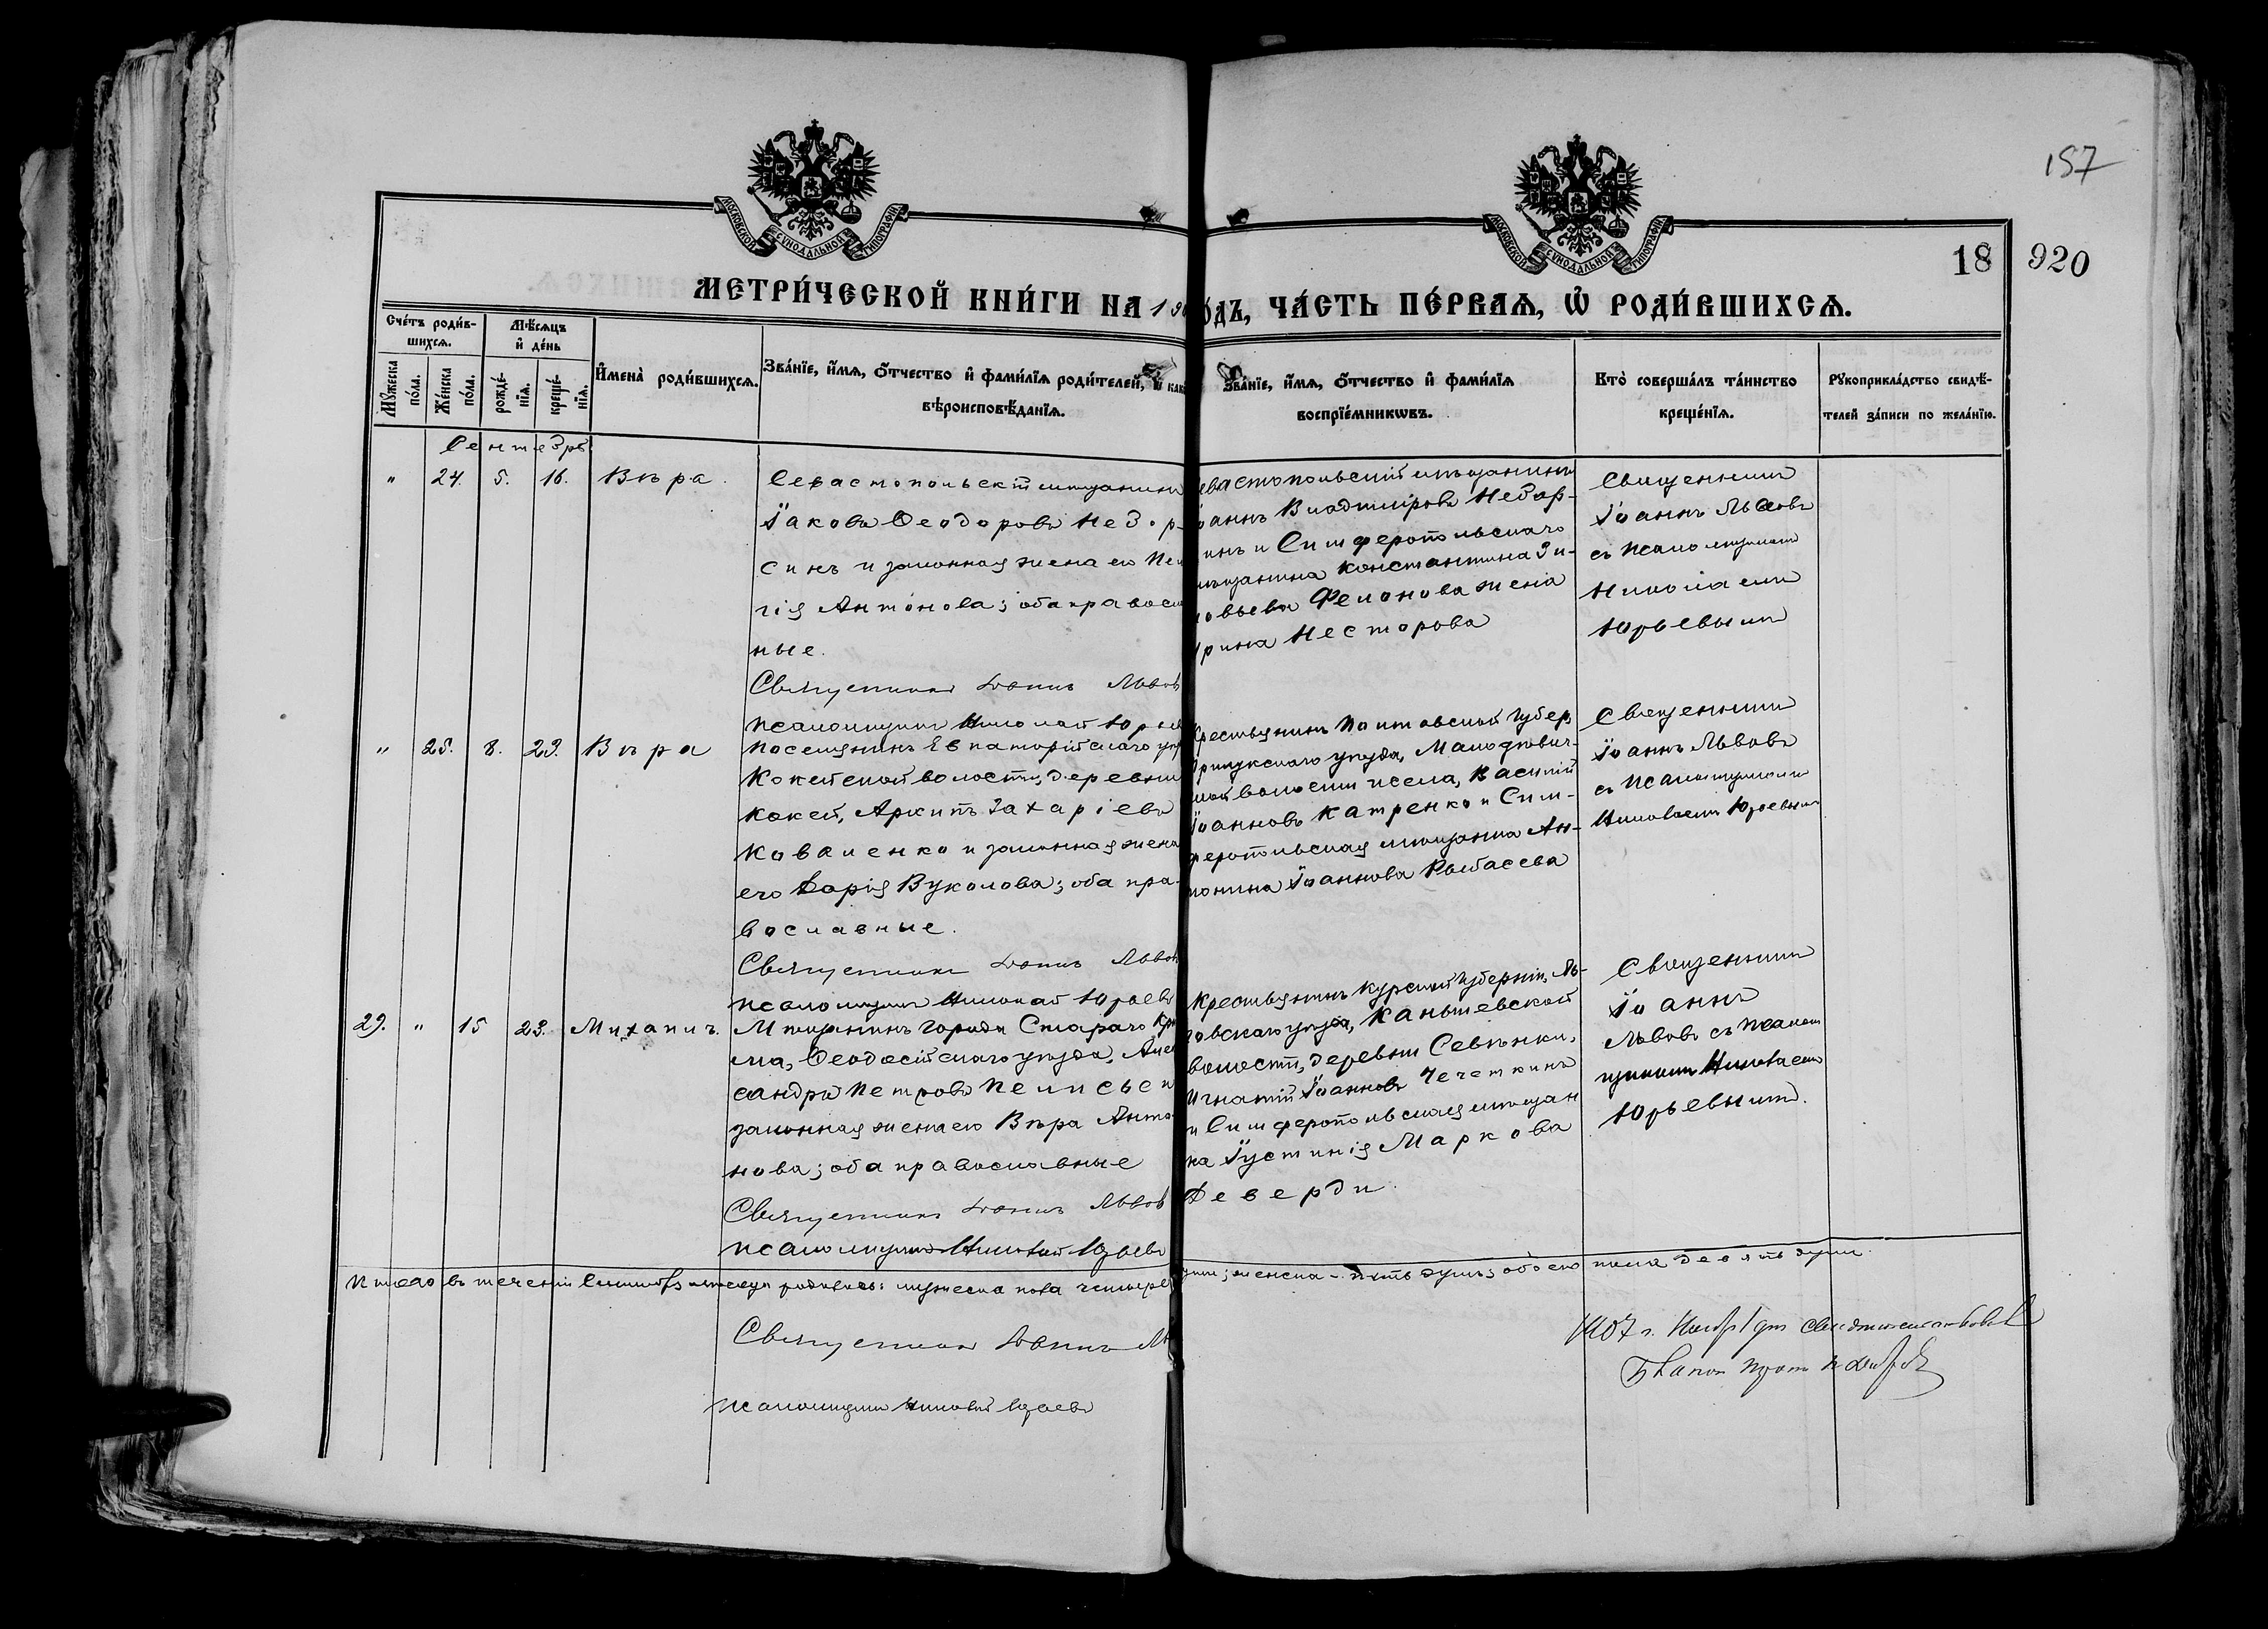 157
МОСКОВСКОЙ СѴНОДАЛЬНОЙ ТИПОГРАФІИ
МОСКОВСКОЙ СѴНОДАЛЬНОЙ ТИПОГРАФІИ
18
920
МЕТРИ́ЧЕСКОЙ КНИ́ГИ НА 190
ОДЪ, ЧА́СТЬ ПЕ́РВАѦ, Ѡ҆ РОДИ́ВШИХСѦ.
Сче́тъ роди́в-
шихсѧ.
Мѣ́сѧцъ
и҆ де́нь
Мꙋ́жеска по́ла.
Же́нска по́ла.
рожде́-
нїѧ.
креще́-
нїѧ.
И҆мена̀ роди́вшихсѧ.
Зва́нїе, и҆́мѧ, ѻ҆́тчество и҆ фами́лїѧ роди́телей, и҆ как
вѣроисповѣ́данїѧ.
Зва́нїе, и҆́мѧ, ѻ҆́тчество и҆ фами́лїѧ
воспрїе́мникѡвъ.
Кто̀ соверша́лъ та́инство
креще́нїѧ.
Рꙋкоприкла́дство свидѣ́-
телей за́писи по жела́нїю.
Сентябрь
" 24. 5. 16. Вѣра.
Севастопольскій мѣщанинъ
Іаковъ Ѳеодоровъ Недор-
синъ и законная жена его Пела
гія Антонова; оба правосл
ные.
Священникъ Іоаннъ Львовъ
Псаломщикъ Николай Юрьев
евастопольскій мѣщанинъ
оаннъ Владиміровъ Недор-
инъ и Симферопольскаго
мѣщанина Константина Зи-
новьева Филонова жена
рина Несторова
Священникъ
Іоаннъ Львовъ
съ псаломщикомъ
Николаемъ
Юрьевымъ
" 25. 8. 23. Вѣра
Поселянинъ Евпаторійскаго уѣз
Кокейской волости, деревни
Кокей, Архипъ Захаріевъ
Коваленко и законная жена
его Дарія Вуколова; оба пра-
вославные.
Священникъ Іоаннъ Львов
псаломщикъ Николай Юрьевъ
Крестьянинъ Полтавской губер,
Прилукскаго уѣзда, Малодѣвич-
ной волости и села, Василій
Іоанновъ Катренко и Сим-
феропольская мѣщанка Ан-
тонина Іоаннова Рыбасева
Священникъ
Іоаннъ Львовъ
съ псаломщикомъ
Николаемъ Юрьевымъ
29. " 15 23. Михаилъ.
Мѣщанинъ города Стараго Кры
ма, Ѳеодосійскаго уѣзда, Алек
сандръ Петровъ
законная жена его Вѣра Анто
нова; оба православные
Священникъ Іоаннъ Львовъ
псаломщикъ Николай Юрьевъ
Крестьянинъ Курской губерніи, Ль-
говскаго уѣзда,
волости, деревни
Игнатій Іоанновъ Чечеткинъ
и Симферопольская мѣщан
ка Іустинія Маркова
Деверди.
Священникъ
Іоаннъ
Львовъ съ псалом
щикомъ Николаемъ
Юрьевымъ.
въ теченіи Сентября мѣсяца родилось: мужеска пола четыре
души; женска - пять душъ; обоего пола девять душъ.
Священникъ Іоаннъ Ль
псаломщикъ Николай Юрьевъ
1907 г.